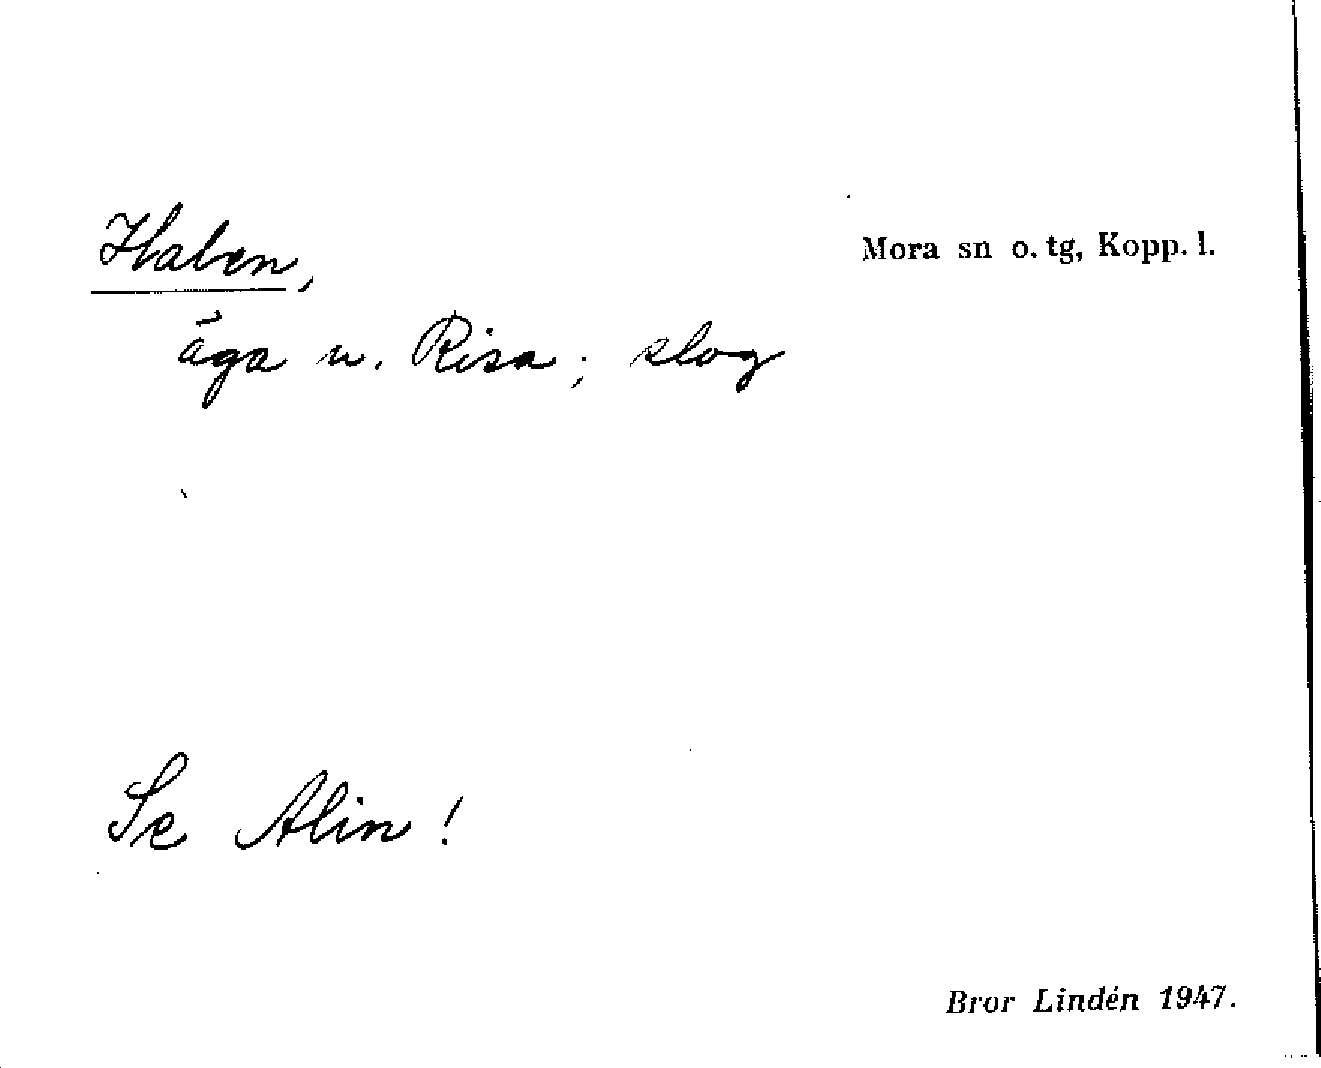 Halen,
Mora sn o. tg, Kopp. l.
äga u. Risa; slog
Se Alin!
Bror Lindén 1947.